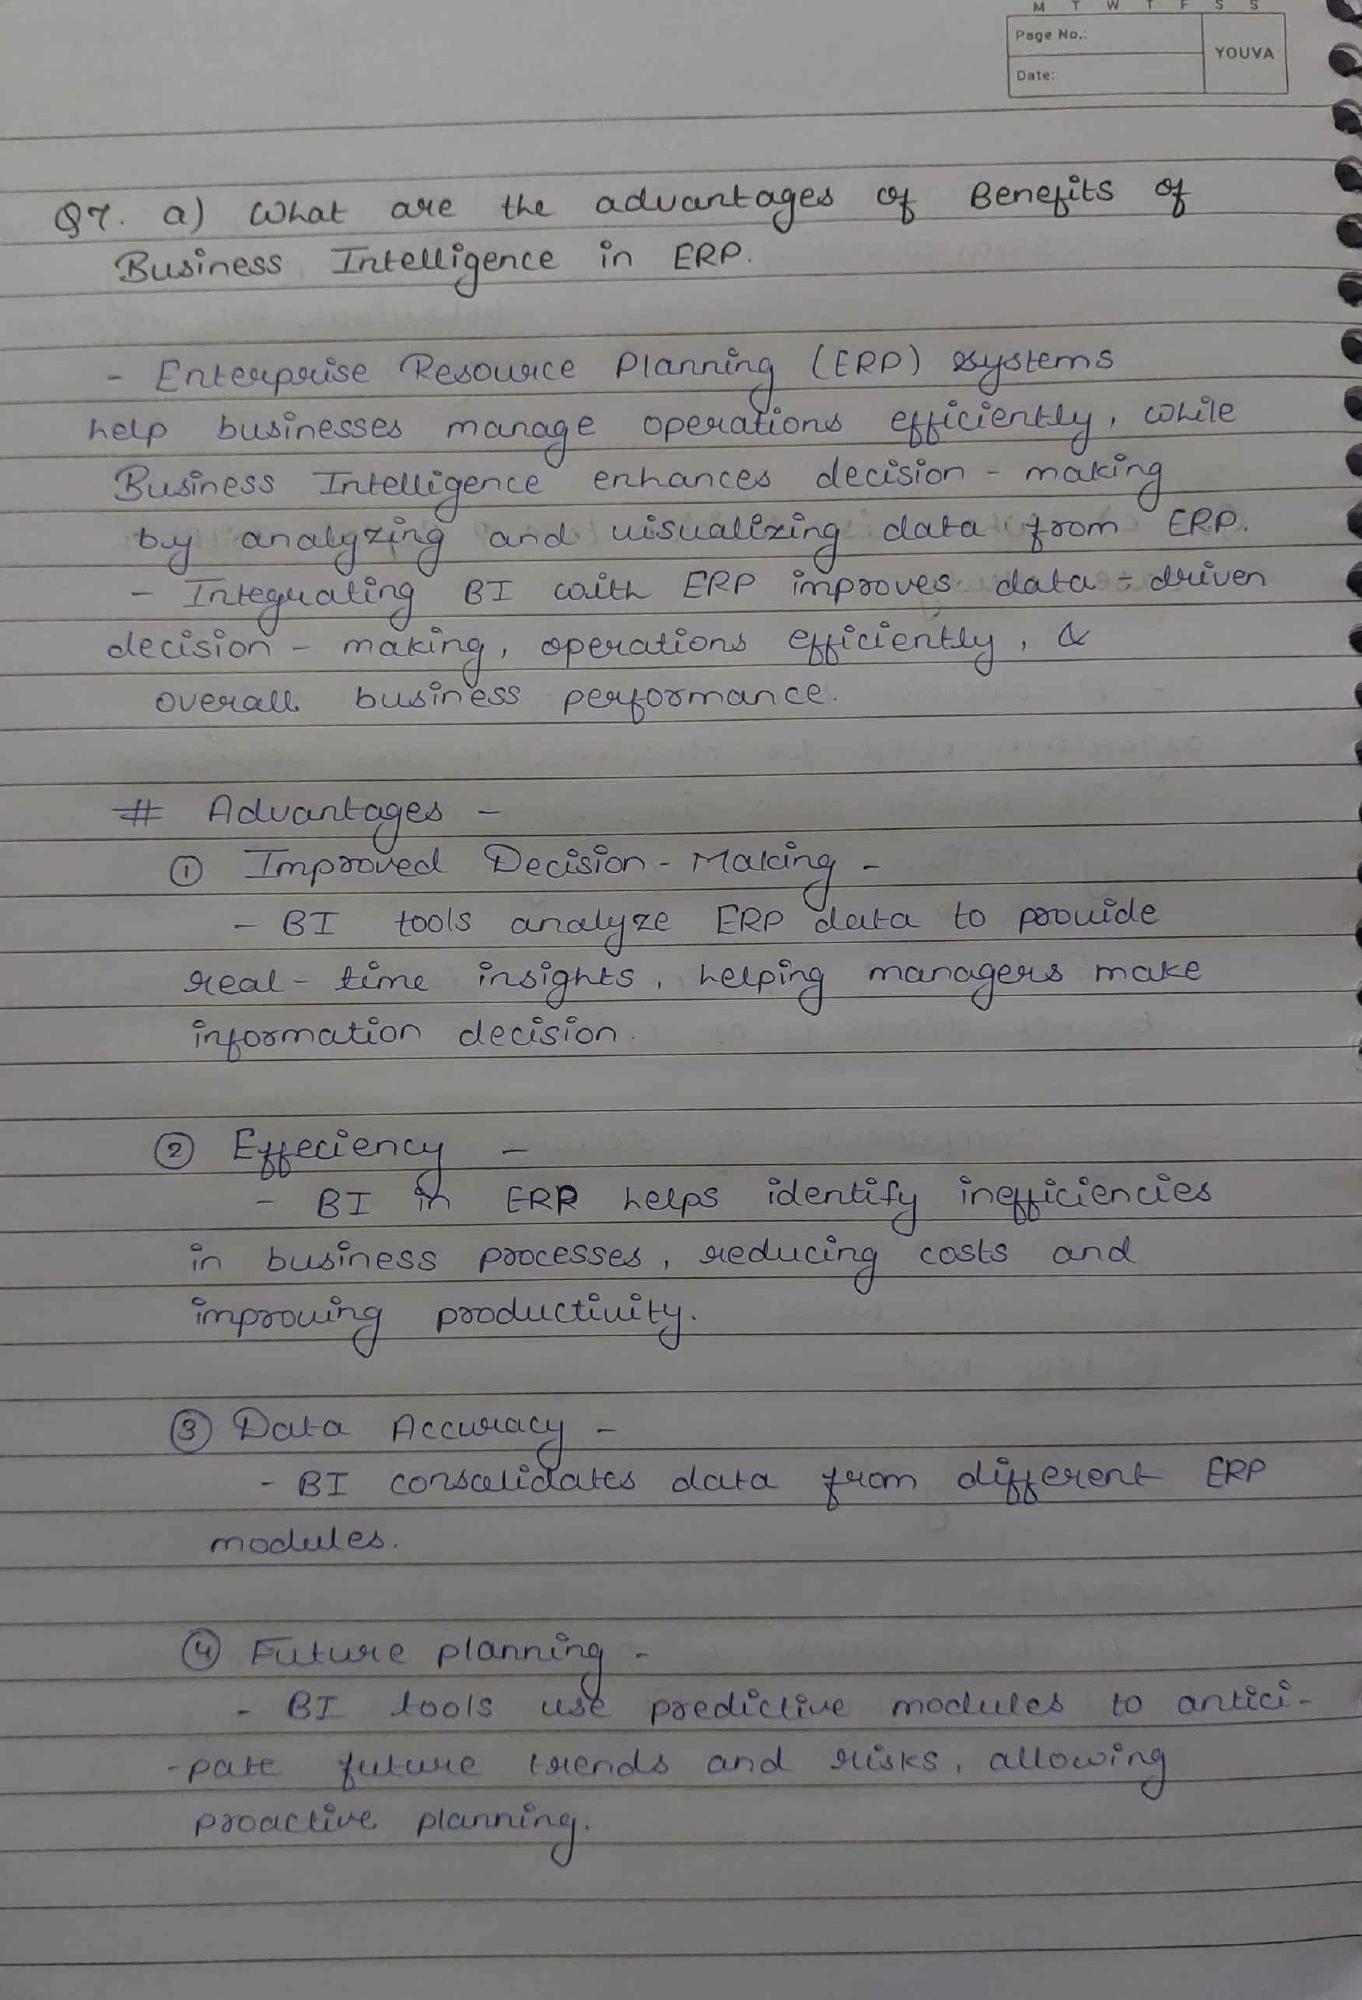 M T W T F S S
Page No.:
YOUVA
Date:
Q7. a) What are the advantages of Benefits of
Business Intelligence in ERP.
- Enterprise Resource Planning (ERP) systems
help businesses manage operations efficiently, while
Business Intelligence enhances decision - making
by analyzing and visualizing data from ERP.
- Integrating BI with ERP improves data - driven
decision - making, operations efficiently, &
overall business performance.
# Advantages -
① Improved Decision - Making -
- BI tools analyze ERP data to provide
real - time insights, helping managers make
information decision.
② Effeciency -
- BI in ERP helps identify inefficiencies
in business processes, reducing costs and
improving productivity.
③ Data Accuracy -
- BI consolidates data from different ERP
modules.
④ Future planning -
- BI tools use predictive modules to antici-
-pate future trends and risks, allowing
proactive planning.